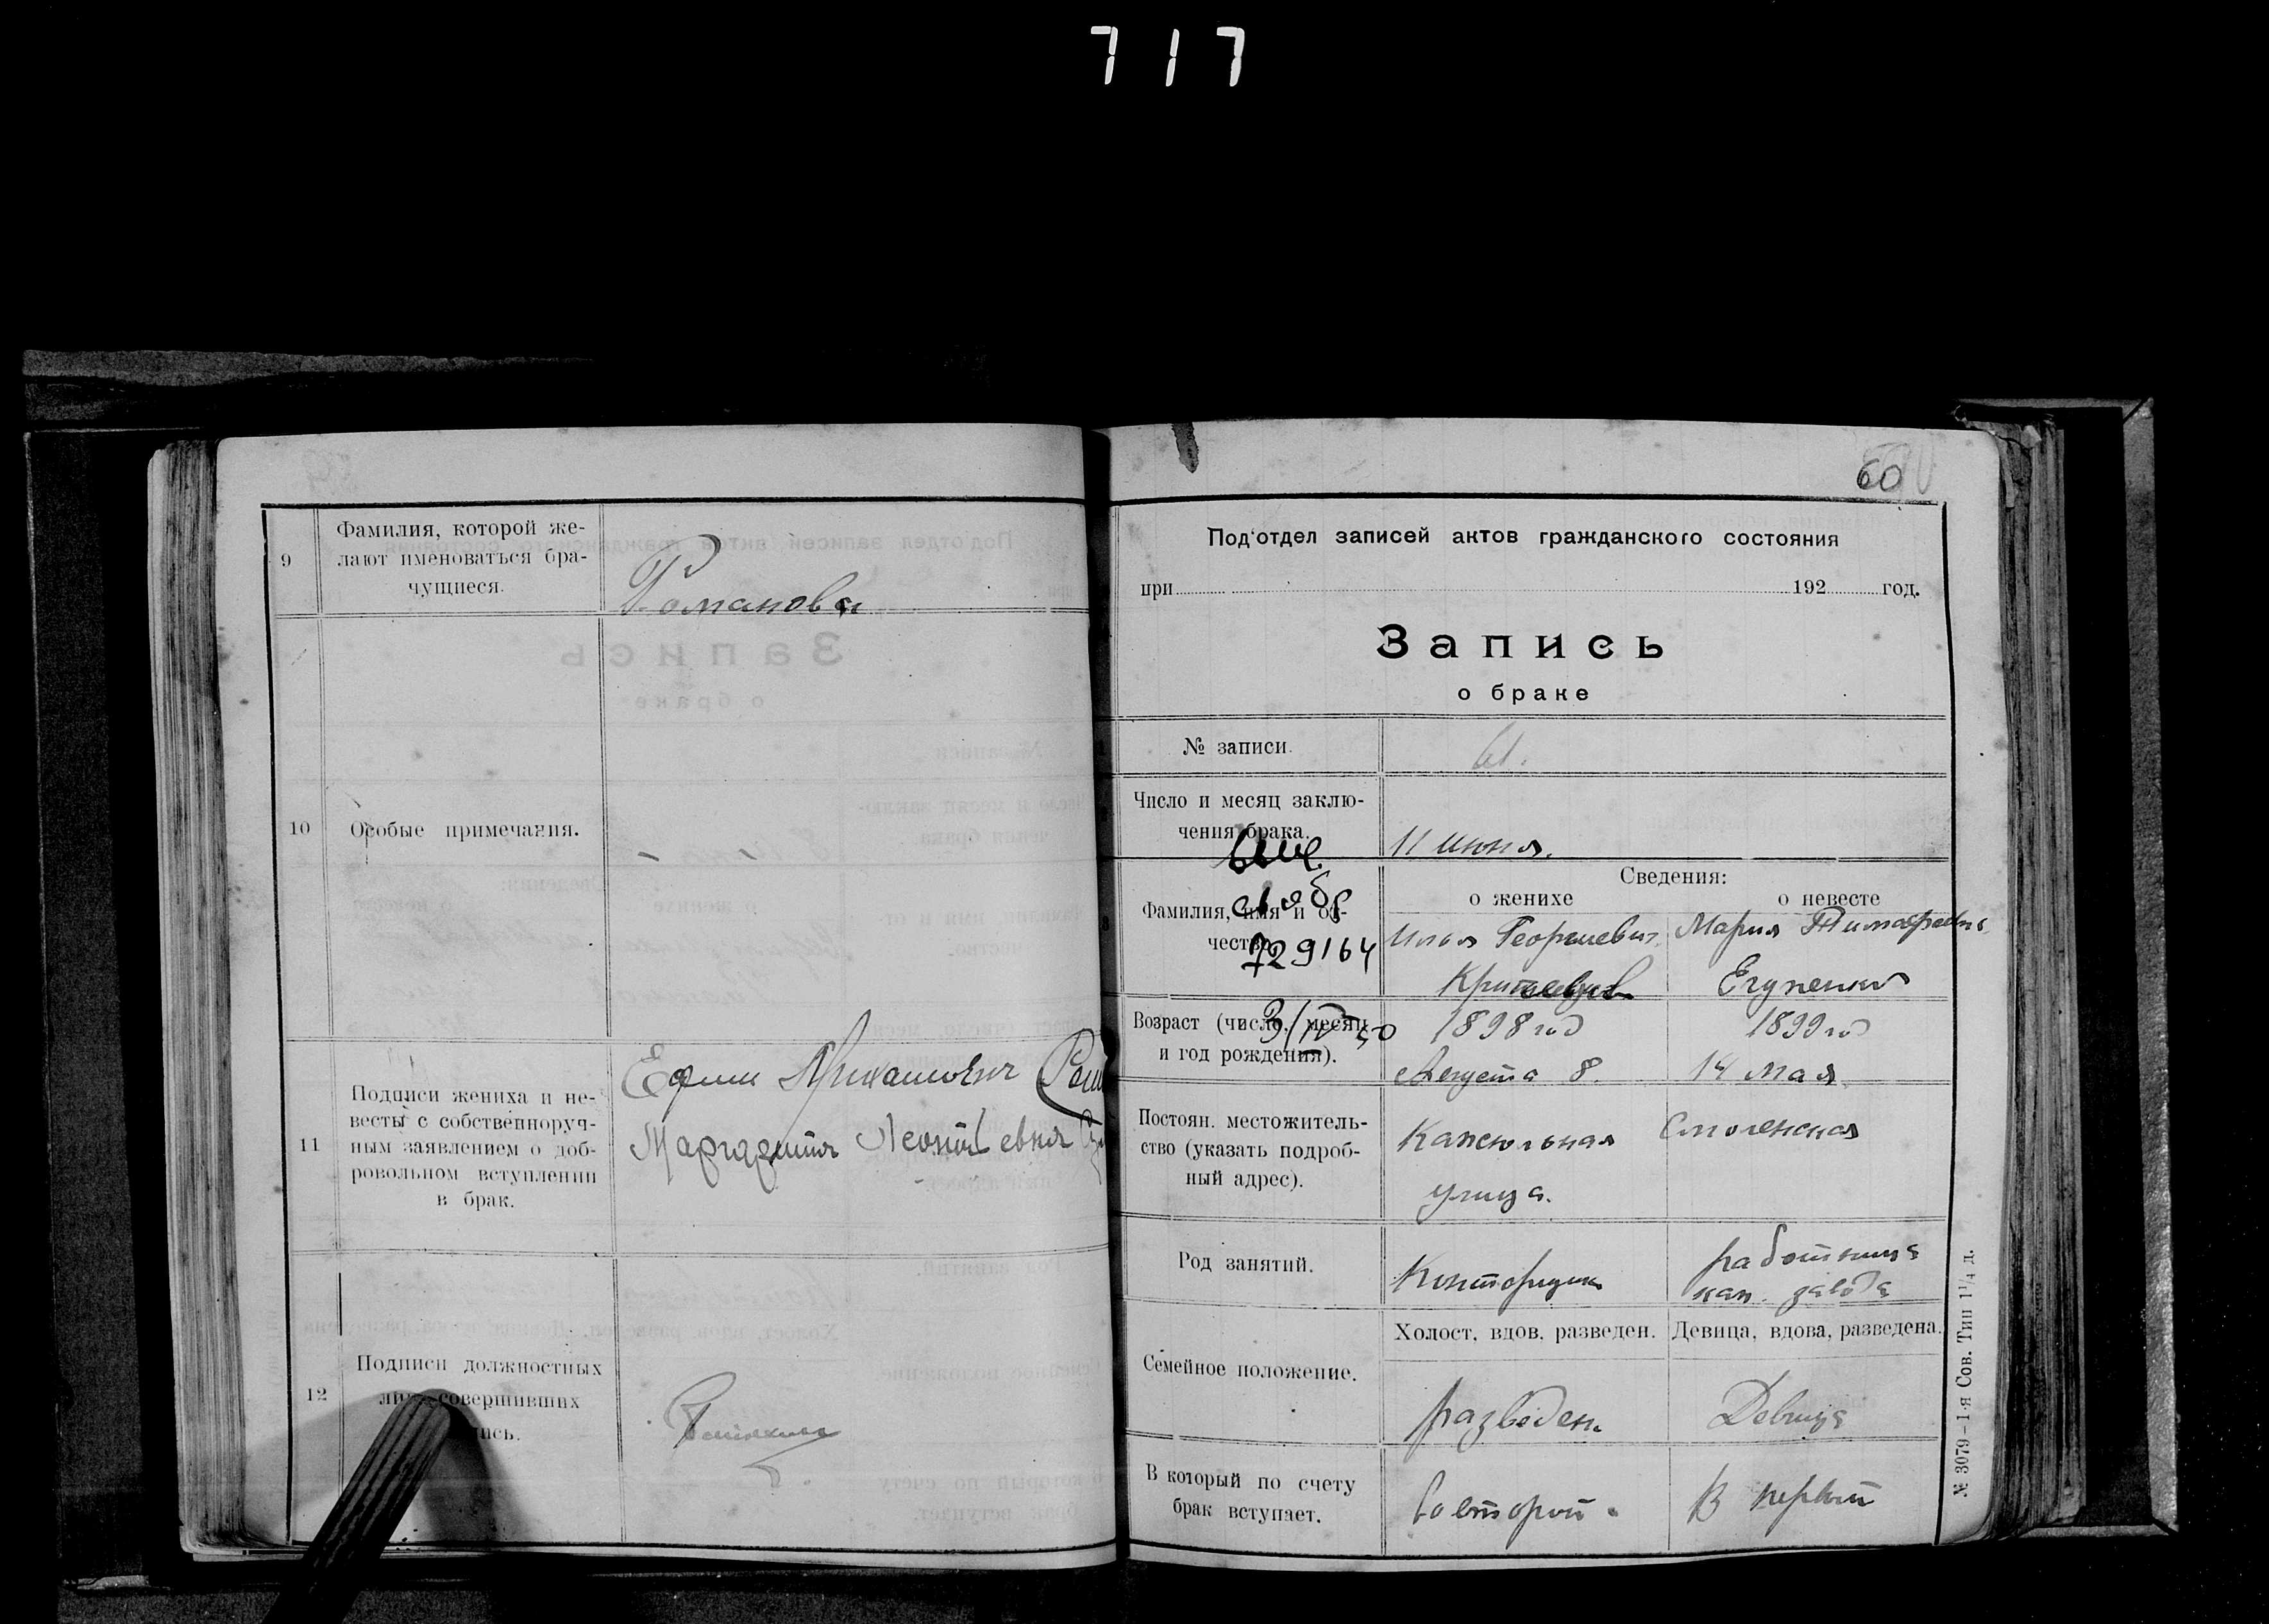 717
9
Фамилия, которой же-
лают именоваться бра-
чущиеся.
Романова
10
Особые примечания.
11
Подписи жениха и не-
весты с собственноруч-
ным заявлением о доб-
ровольном вступлении
в брак.
Ефим
Маргарита Леонтьевна
12
Подписи должностных
совершивших
60
Под'отдел записей актов гражданского состояния
при 192 год.
Запись
о браке
№ записи.
61.
Число и месяц заклю-
чения брака.
11 июня.
Сведения:
о женихе о невесте
Фамилия, имя и от-
чество.
729164
Илья Георгиевич
Мария Тимофеевна
Егупенко
Возраст (число, месяц
и год рождения).
3/IV 50
1898 год
Августа 8.
1899 год
14 мая
Постоян. местожитель-
ство (указать подроб-
ный адрес).
улица.
Смоленская
Род занятий.
Конторщик
работница
завода
Семейное положение.
Холост, вдов, разведен. Девица, вдова, разведена.
разведен.
Девица
В который по счету
брак вступает.
во второй.
В первый
№ 3079-1-я Сов. Тип 1¹/₄ д.